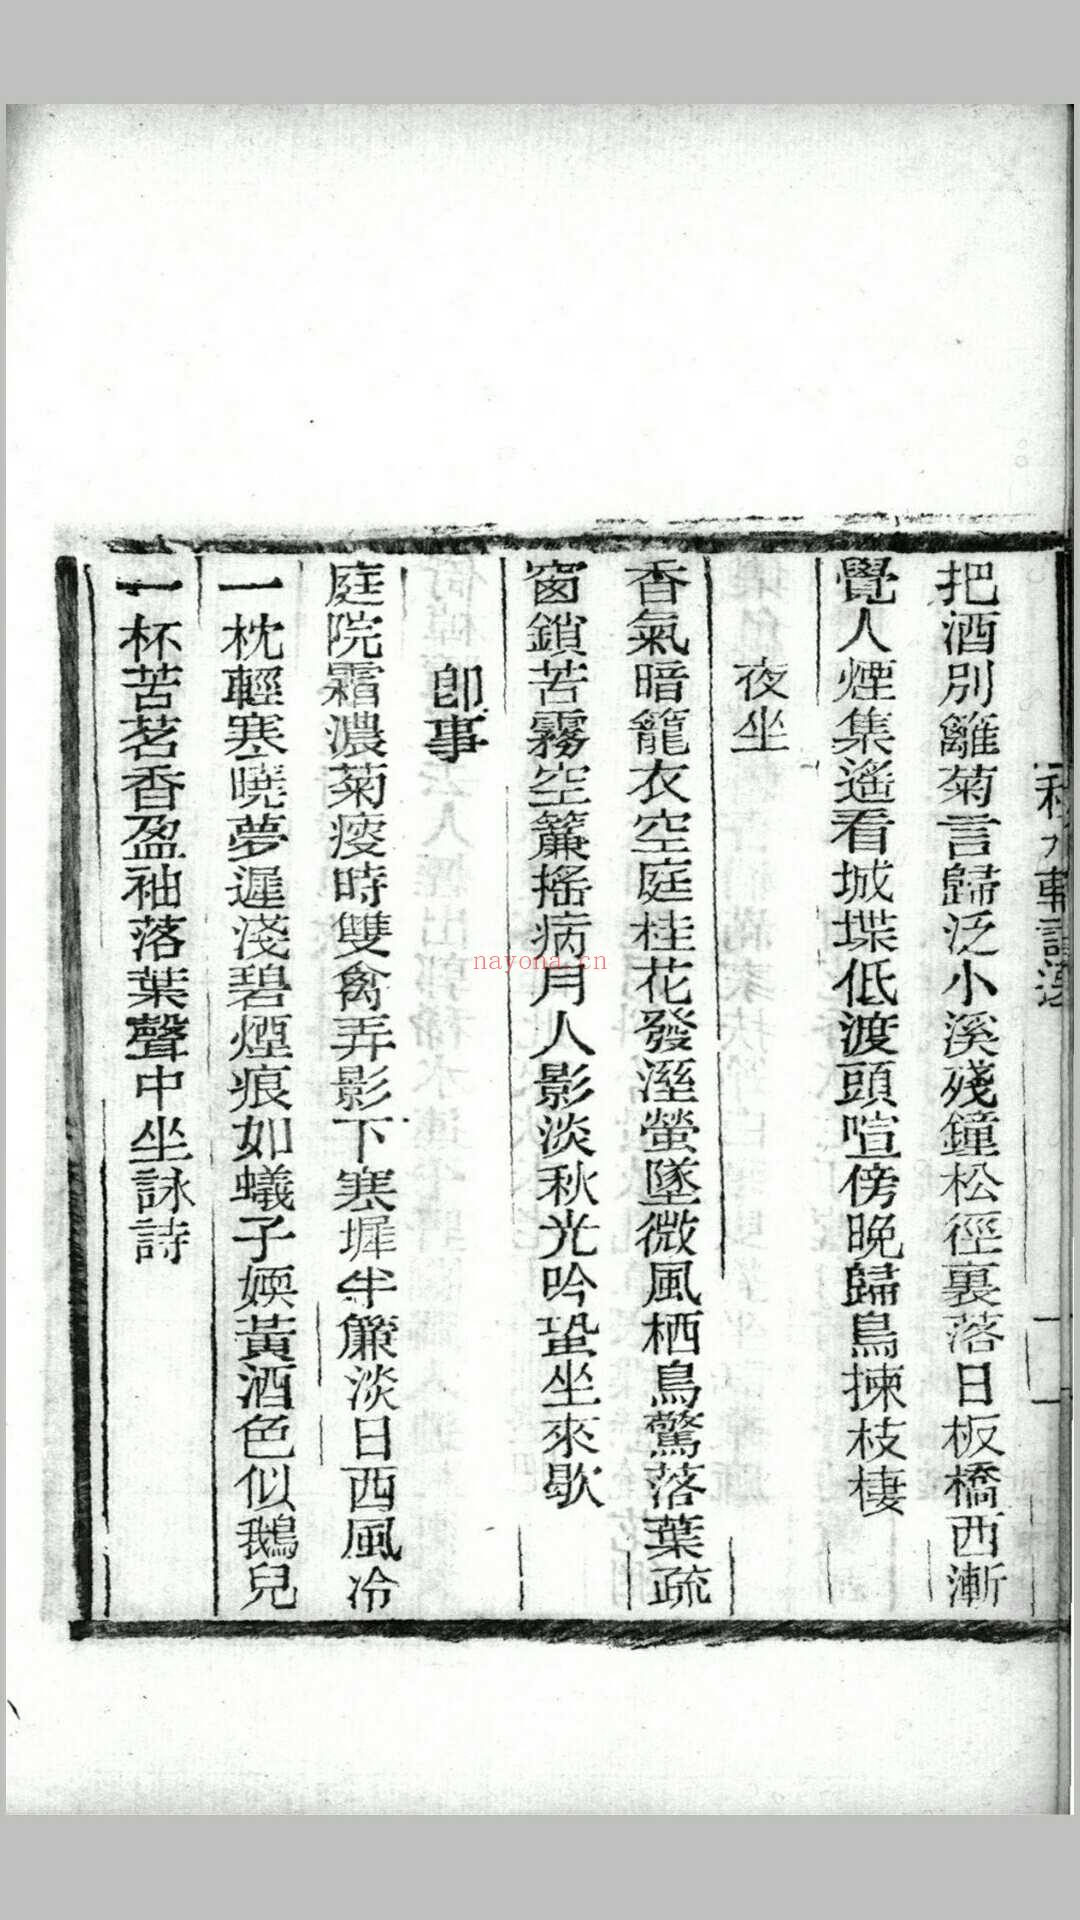 把酒別籬菊言歸泛小溪殘鐘松徑裏落日板橋西漸
覺人煙集遙看城堞低渡頭喧傍晚歸鳥揀枝棲
夜坐
香氣暗籠衣空庭桂花發溼螢墜微風栖鳥驚落葉疏
窗鎖苦霧空簾搖病月人影淡秋光吟蛩坐來歇
卽事
庭院霜濃菊瘦時雙禽弄影下寒墀半簾淡日西風冷
一枕輕寒曉夢遲淺碧煙痕如蟻子媆黃酒色似鵝兒
一杯苦茗香盈袖落葉聲中坐詠詩
nayona.cn